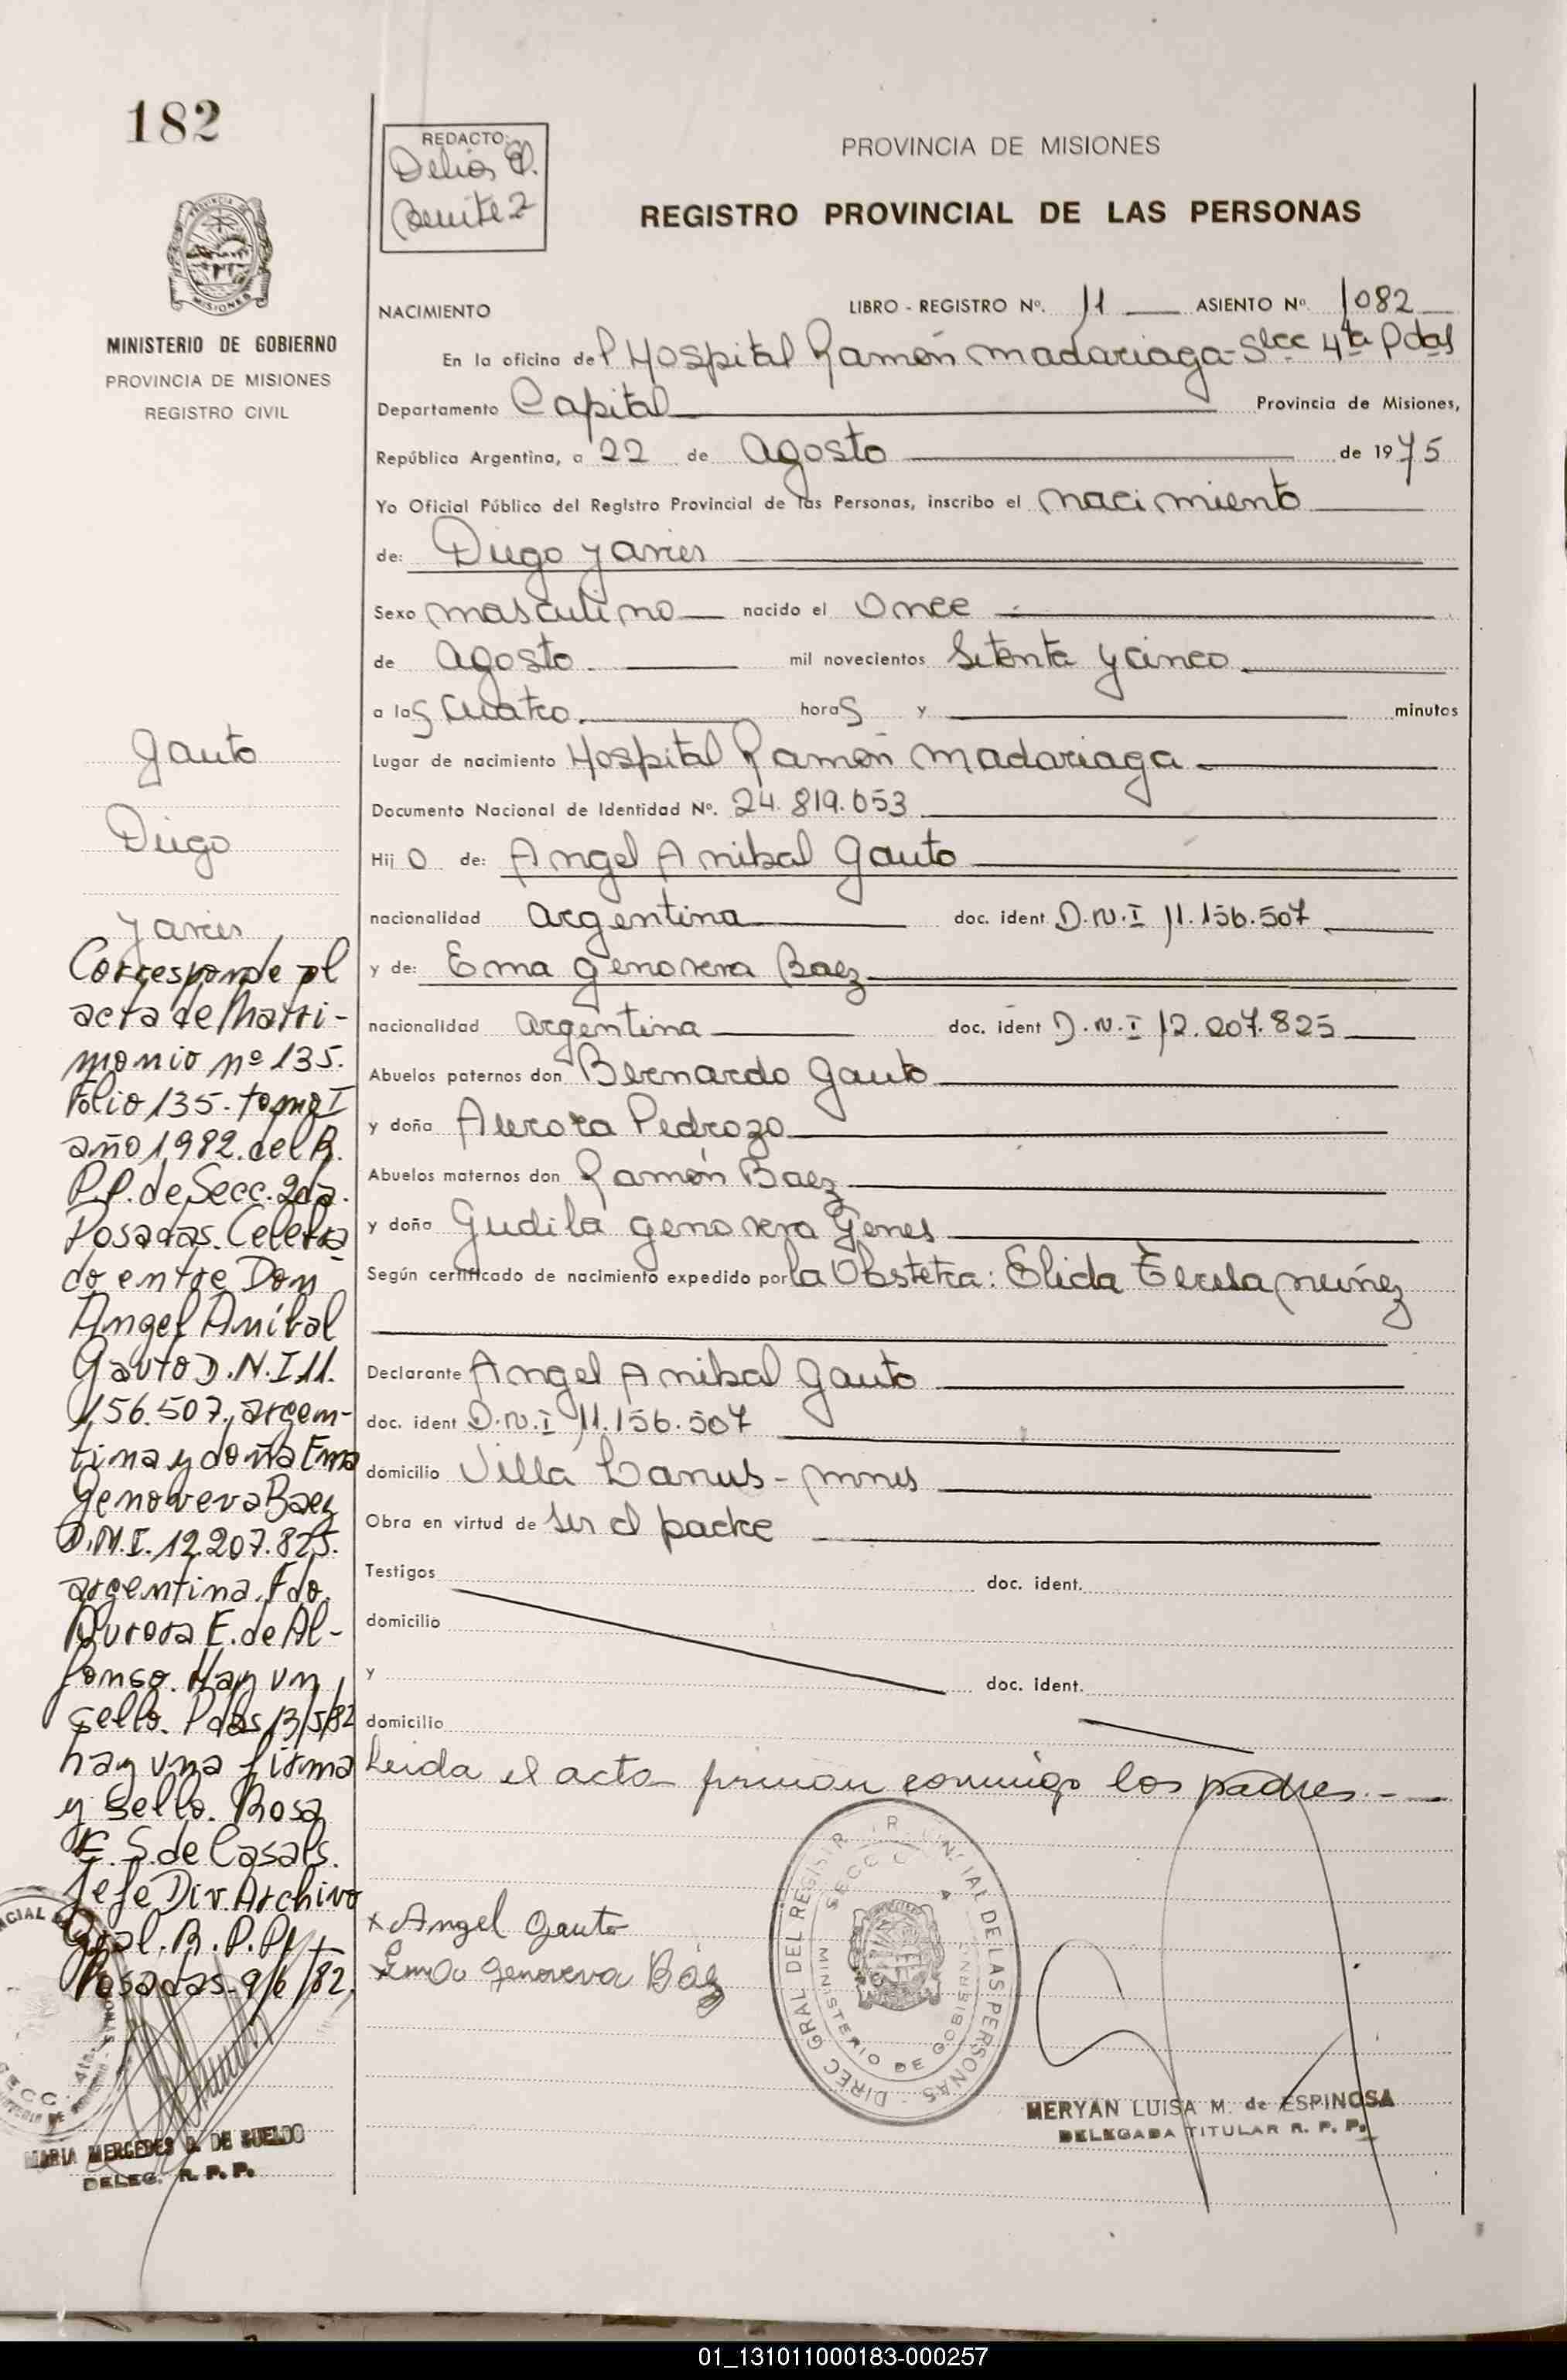 182
REDACTO:
Delias
Benitez
PROVINCIA DE MISIONES
REGISTRO PROVINCIAL DE LAS PERSONAS
MISIONES
MINISTERIO DE GOBIERNO
PROVINCIA DE MISIONES
REGISTRO CIVIL
NACIMIENTO LIBRO - REGISTRO Nº. 11 ASIENTO Nº. 1082
En la oficina del Hospital Ramón Madariaga-Secc 4ta Pdas
Departamento Capital Provincia de Misiones,
República Argentina, a 22 de Agosto de 1975
Yo Oficial Público del Registro Provincial de las Personas, inscribo el nacimiento
de: Diego Javier
Sexo masculino nacido el Once
de Agosto mil novecientos Setenta y cinco
a las cuatro horas y minutos
Lugar de nacimiento Hospital Ramón Madariaga
Documento Nacional de Identidad Nº. 24.819.653
Hijo de: Angel Anibal Gauto
nacionalidad argentina doc. ident D.N.I 11.156.507
y de: Ema Genoveva Baez
nacionalidad argentina doc. ident D.N.I 12.207.825
Abuelos paternos don Bernardo Gauto
y doña Aurora Pedrozo
Abuelos maternos don Ramón Baez
y doña Gudila Genoveva Genes
Según certificado de nacimiento expedido por la Obstetra: Elida Teresa Nuñez
Declarante Angel Anibal Gauto
doc. ident D.N.I 11.156.507
domicilio Villa Lanus - mnes
Obra en virtud de ser el padre
Testigos doc. ident.
domicilio
y doc. ident.
domicilio
Leida el acta firman conmigo los padres.-
x Angel Gauto
x Ema Genoveva Báez
DIREC GRAL DEL REGISTR PROVINCIAL DE LAS PERSONAS
MINISTERIO DE GOBIERNO
SECC
MERYAN LUISA M. de ESPINOSA
DELEGADA TITULAR R. P. P.
Gauto
Diego
Javier
Corresponde al
acta de Matri-
monio nº 135.
Folio 135. tomo I
año 1982. del R.
P.P. de Secc. 2da.
Posadas. Celebra
do entre Don
Angel Aníbal
Gauto D.N.I 11.
156.507, argen-
tina y doña Ema
Genoveva Baez
D.N.I. 12.207.825.
argentina. Fdo.
Aurora E. de Al-
fonso. Hay un
sello. Pdas 13/5/82
hay una firma
y sello. Rosa
E. S. de Casals.
Jefe Div. Archivo
Gral. R. P. P.
Posadas 9/6/82.
MARIA MERCEDES DE SUELDO
DELEG. R. P. P.
01_131011000183-000257